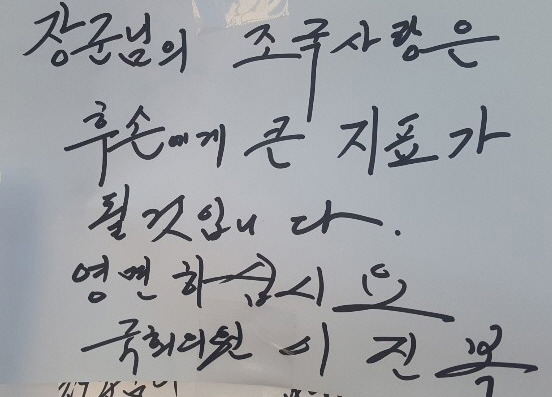 장군님의 조국사랑은
후손에게 큰 지표가
될것입니다.
영면하십시요
국회의원 이진복